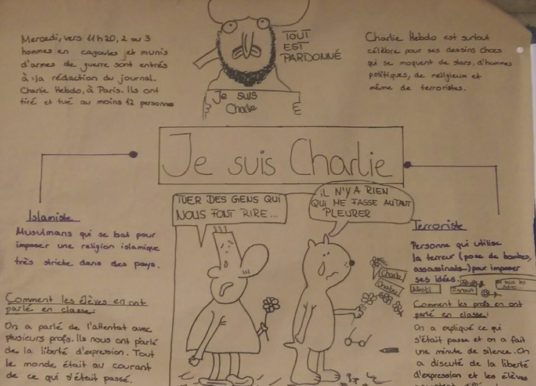 Mercredi, vers 11h20, 2 ou 3
hommes en cagoules et munis
d'armes de guerre sont entrés
à la rédaction du journal
Charlie Hebdo, à Paris. Ils ont
tiré et tué au moins 12 personnes
TOUT
EST
PARDONNÉ
Je suis
Charlie
Charlie Hebdo est surtout
célèbre pour ses dessins chocs
qui se moquent de stars, d'hommes
politiques, de religieux et
même de terroristes.
Je suis Charlie
Islamiste
Musulmans qui se bat pour
imposer une religion islamique
très stricte dans des pays.
Comment les élèves en ont
parlé en classe
On a parlé de l'attentat avec
plusieurs profs. Ils nous ont parlé
de la liberté d'expression. Tout
le monde était au courant
de ce qui s'était passé.
TUER DES GENS QUI
NOUS FONT RIRE...
IL N'Y A RIEN
QUI ME FASSE AUTANT
PLEURER
Charlie
Terroriste
Personne qui utilise
la terreur (pose de bombes,
assassinats) pour imposer
ses idées.
Comment les profs en ont
parlé en classe
On a expliqué ce qui
s'était passé et on a fait
une minute de silence. On
a discuté de la liberté
d'expression et les élèves